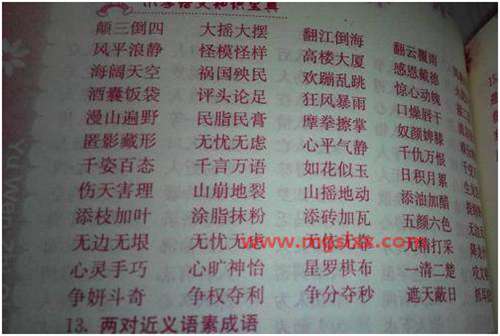 小学语文知识宝典
颠三倒四 大摇大摆 翻江倒海 翻云覆雨
风平浪静 怪模怪样 高楼大厦 感恩戴德
海阔天空 祸国殃民 欢蹦乱跳 惊心动魄
酒囊饭袋 评头论足 狂风暴雨 口燥唇干
漫山遍野 民脂民膏 摩拳擦掌 奴颜婢膝
匿影藏形 无忧无虑 心平气静 千仇万恨
千姿百态 千言万语 如花似玉 日积月累
伤天害理 山崩地裂 山摇地动 添油加醋
添枝加叶 涂脂抹粉 添砖加瓦 五颜六色
无边无垠 无忧无虑 无精打采
www.mgsbx.com
心灵手巧 心旷神怡 星罗棋布 一清二楚
争妍斗奇 争权夺利 争分夺秒 遮天蔽日
13. 两对近义语素成语